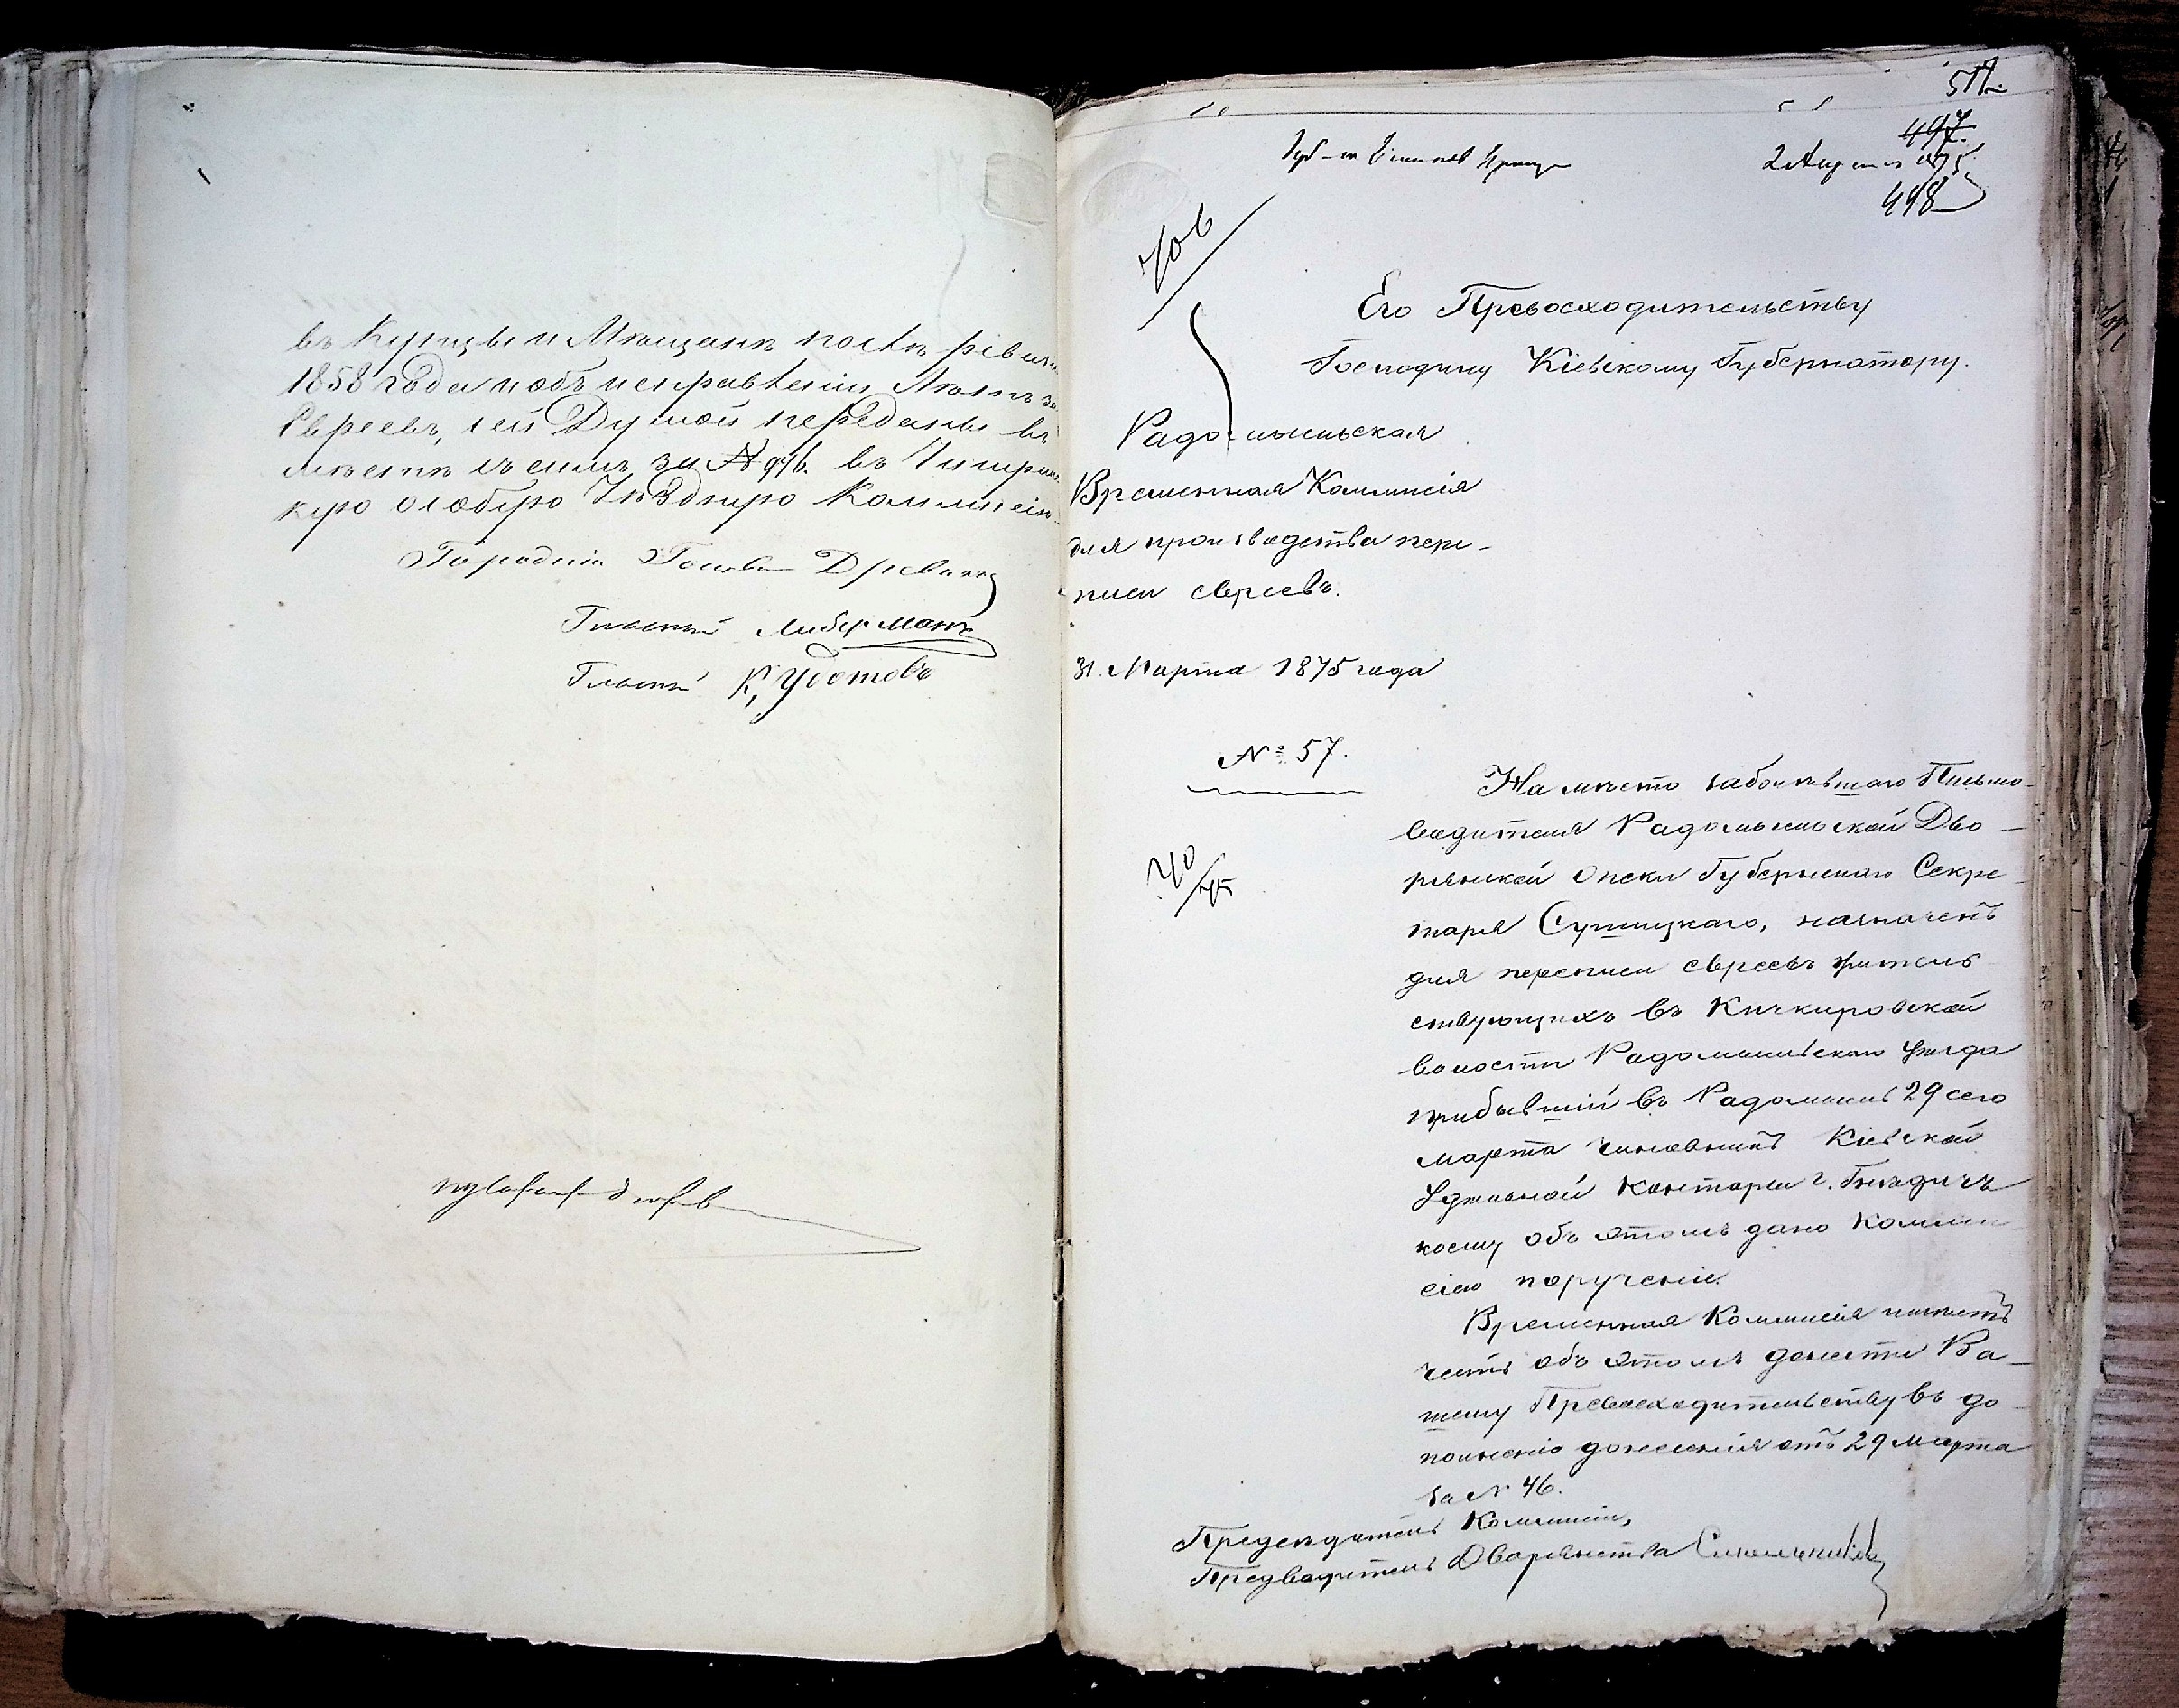 въ Купцы и Мѣщане послѣ ревизіи
1858 года и объ исправленіи лѣтъ
Евреевъ, сей Думой переданы въ
мѣстѣ съ симъ за № 946. въ
кую особую Уѣздную Коммисію.
Городской Голова
Гласный Либерманъ
Гласный К,
517
497.
2 Апрѣля 1875
498
706
Его Превосходительству
Господину Кіевскому Губернатору.
Радомысльская
Временная Коммисія
для производства пере-
писи евреевъ.
31. Марта 1875 года
№ 57.
40/75
На мѣсто заболѣвшаго Письмо-
водителя Радомысльской Дво-
рянской Опеки Губернскаго Секре-
таря назначенъ
для переписи евреевъ житель
ствующихъ въ Кичкировской
волости Радомысльскаго уѣзда
прибывшій въ Радомысль 29 сего
марта чиновникъ Кіевской
Удѣльной Конторы г. Гнѣдичъ
коему объ этомъ дано Комми
сіею порученіе.
Временная Коммисія имѣетъ
честь объ этомъ донести Ва-
шему Превосходительству въ до-
полненіе донесенія отъ 29 марта
за № 46.
Предсѣдатель Коммисіи,
Предводитель Дворянства Синельниковъ